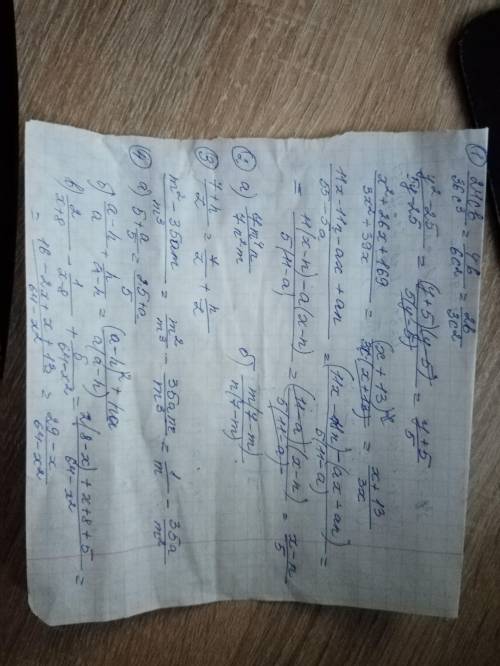 ① 24cb / 36c³ = 4b / 6c² = 2b / 3c²
y² - 25 / 5y - 25 = (y+5)(y-5) / 5(y-5) = y+5 / 5
x² + 26x + 169 / 3x² + 39x = (x+13)² / 3x(x+13) = x+13 / 3x
11x - 11n - ax + an / 55 - 5a = (11x - 11n) - (ax + an) / 5(11-a) =
= 11(x-n) - a(x-n) / 5(11-a) = (11-a)(x-n) / 5(11-a) = x-n / 5
② а) 4n²a / 4n²m б) n(7-m) / n(7-m)
③ 7+h / 2 = 7/2 + h/2
m² - 35am / m³ = m² / m³ - 35am / m³ = 1/m - 35a / m²
④ а) 5+a / 5 = 25a / 5
б) a-h / a + h / a-h = (a-h)² + ha / a(a-h)
в) 2 / x+8 - 1 / x-8 + 5 / 64-x² = 2(8-x) + x+8+5 / 64-x² =
= 16 - 2x + x + 13 / 64-x² = 29-x / 64-x²